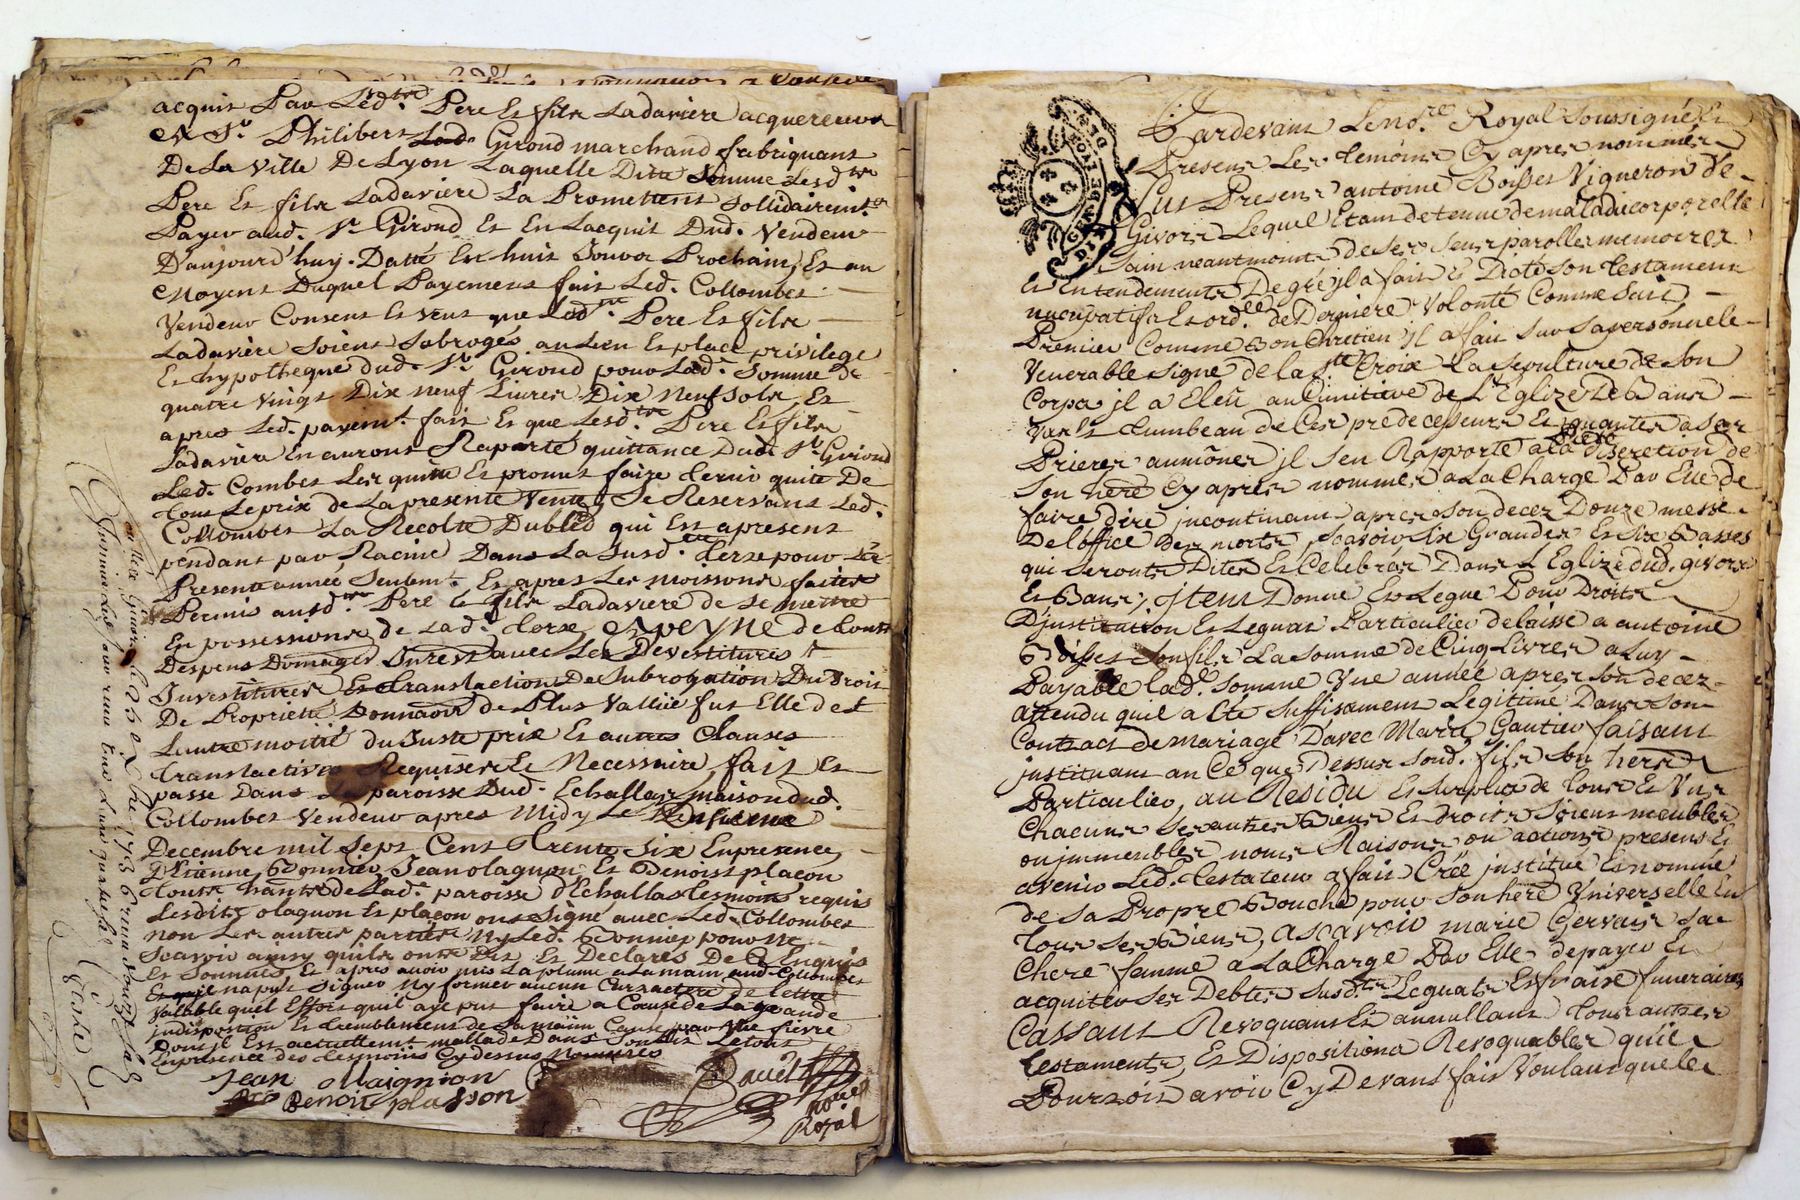 acquis Par Lesd.tes Pere Et fils Ladavière acquereurs
A Sr. Philibert Girond marchand fabriquant
De La Ville De Lyon Laquelle Ditte Somme Lesd.
Pere Et fils Ladavière La Promettent Sollidairemt.
Payer aud. Sr Girond Et En Lacquit Dud. Vendeur
D'aujourd'huy Datté En huit Jours Prochain, Et au
Moyens Duquel Payement fait Led. Collombet
Vendeur Consent Et veut que Lesd. Pere Et fils
Ladavière Soient Subrogés au Lieu Et place privilege
Et hypotheque dud. Sr. Girond pour Lad. Somme de
quatre vingt Dix neuf Livres Dix Neuf Sols, Et
apres Led. payemt. fait Et que Lesd. Pere Et fils
Ladavière En auront Raporté quittance Dud. Sr. Girond
Led. Combet Les quitte Et promet faire tenir quite De
tout Le prix de La presente Vente, Se Reservant Led.
Collombet La Recolte Dubled qui Est apresent
pendant par Racine Dans La Susd. terre pour
Presente année Seulemt. Et apres Les moissons faites
Permis ausd. Pere Et fils Ladaviere de Se mettre
En possessions de Lad. terre, A Peyne de tous
Despens Domages Interest avec Les Devestitures
Investitures Et translactions De Subrogation Du Droit
De Proprieté Donnaon de Plus Vallüe fut Elle de
Lautre moitié du Juste prix Et autres Clauses
translactives Requises Et Necessaire fait Et
passé Dans La paroisse Dud. Echallas maison dud.
Collombet Vendeur apres Midy Le
Decembre mil Sept Cent Trente Six En presence
D'Etienne Bonnier, Jean olagnon Et Benoist plaçon
tous habts de Lad. paroisse d'Echallas temoins requis
Lesdits olagnon Et plaçon ont Signé avec Led. Collombet
non Les autres parties Ny Led. Bonnier pour Ne
Scavoir ainsy quils ont Dit Et Declaré De Ce Enquis
Et Sommés, Et apres avoir mis La plume a La main aud. Collombet
Et quil na put Signer Ny former aucun Carractere de lettre
Vallable quel Effort quil aye put faire a Cause de La grande
indisposition Et tremblement de Sa main Causé par Une fievre
Dont il Est actuellemt. mallade Dans Son Lit Le tout
En presence des tesmoins Cy dessus Nommés
Jean ollaignion
Benoit plasson
Roÿal
Pardevant Le no.re Royal Soussigné Et
Presens Les temoins Cy apres nommés
Fut Present antoine Boisset Vigneron De
Givors Lequel Etant detenue de maladie corporelle
Sain neantmoins de Ses Sens parolles memoires
Et Entendements De gré il a fait et Dicté Son testament
nuncupatif Et ord.ce de Derniere Volonté Comme Suit,
Premier Comme Bon Chretien il a fait Sur Sa personne le
Venerable Signe de la Ste Croix La Sepulture de Son
Corps il a Eleü au Cimitiere de L'Eglize De Bans
Vers Le tumbeau de Ces predecesseurs Et quantes a Ses
Prieres aumônes il Sen Rapporte a la discretion de
Son here Cy apres nommés a La Charge Par Elle de
faire dire incontinant apres Son decez Douze messe
De Loffice Des morts, Scavoir Six Grandes Et Six Basses
qui Seronts Dites Et Celebrés Dans L'Eglize dud. givors
Et Bans, Item Donne Et Legue Pour Droits
D'institution Et Leguat Particulier delaisse a antoine
Boisset Son fils La Somme de Cinq Livres a Luy
Payable lad. Somme Une année apres Son decez
attendu quil a Eté Suffisament Legitimé Dans Son
Contract de Mariage Davec Marie Gautier faisant
instituant en Ce que Dessus Soud. fils Son here
Particulier, au Residu Et Surplus de tous Et Uns
Chacuns Ses autres Biens Et droits Soient meubles
ou immeubles noms Raisons ou actions presens Et
avenir Led. testateur a fait Créé institué Et nommé
de Sa Propre Bouche pour Son here Universelle En
tous Ses Biens, ascavoir marie Gervais Sa
Chere femme a La Charge Par Elle de payer Et
acquiter Ses Debtes Susd. Leguats Et fraix funeraires
Cassant Revoquant Et annullant tous autres
testaments, Et Dispositions Revoquables quil
Pourroit avoir Cy Devant fait Voulant que le